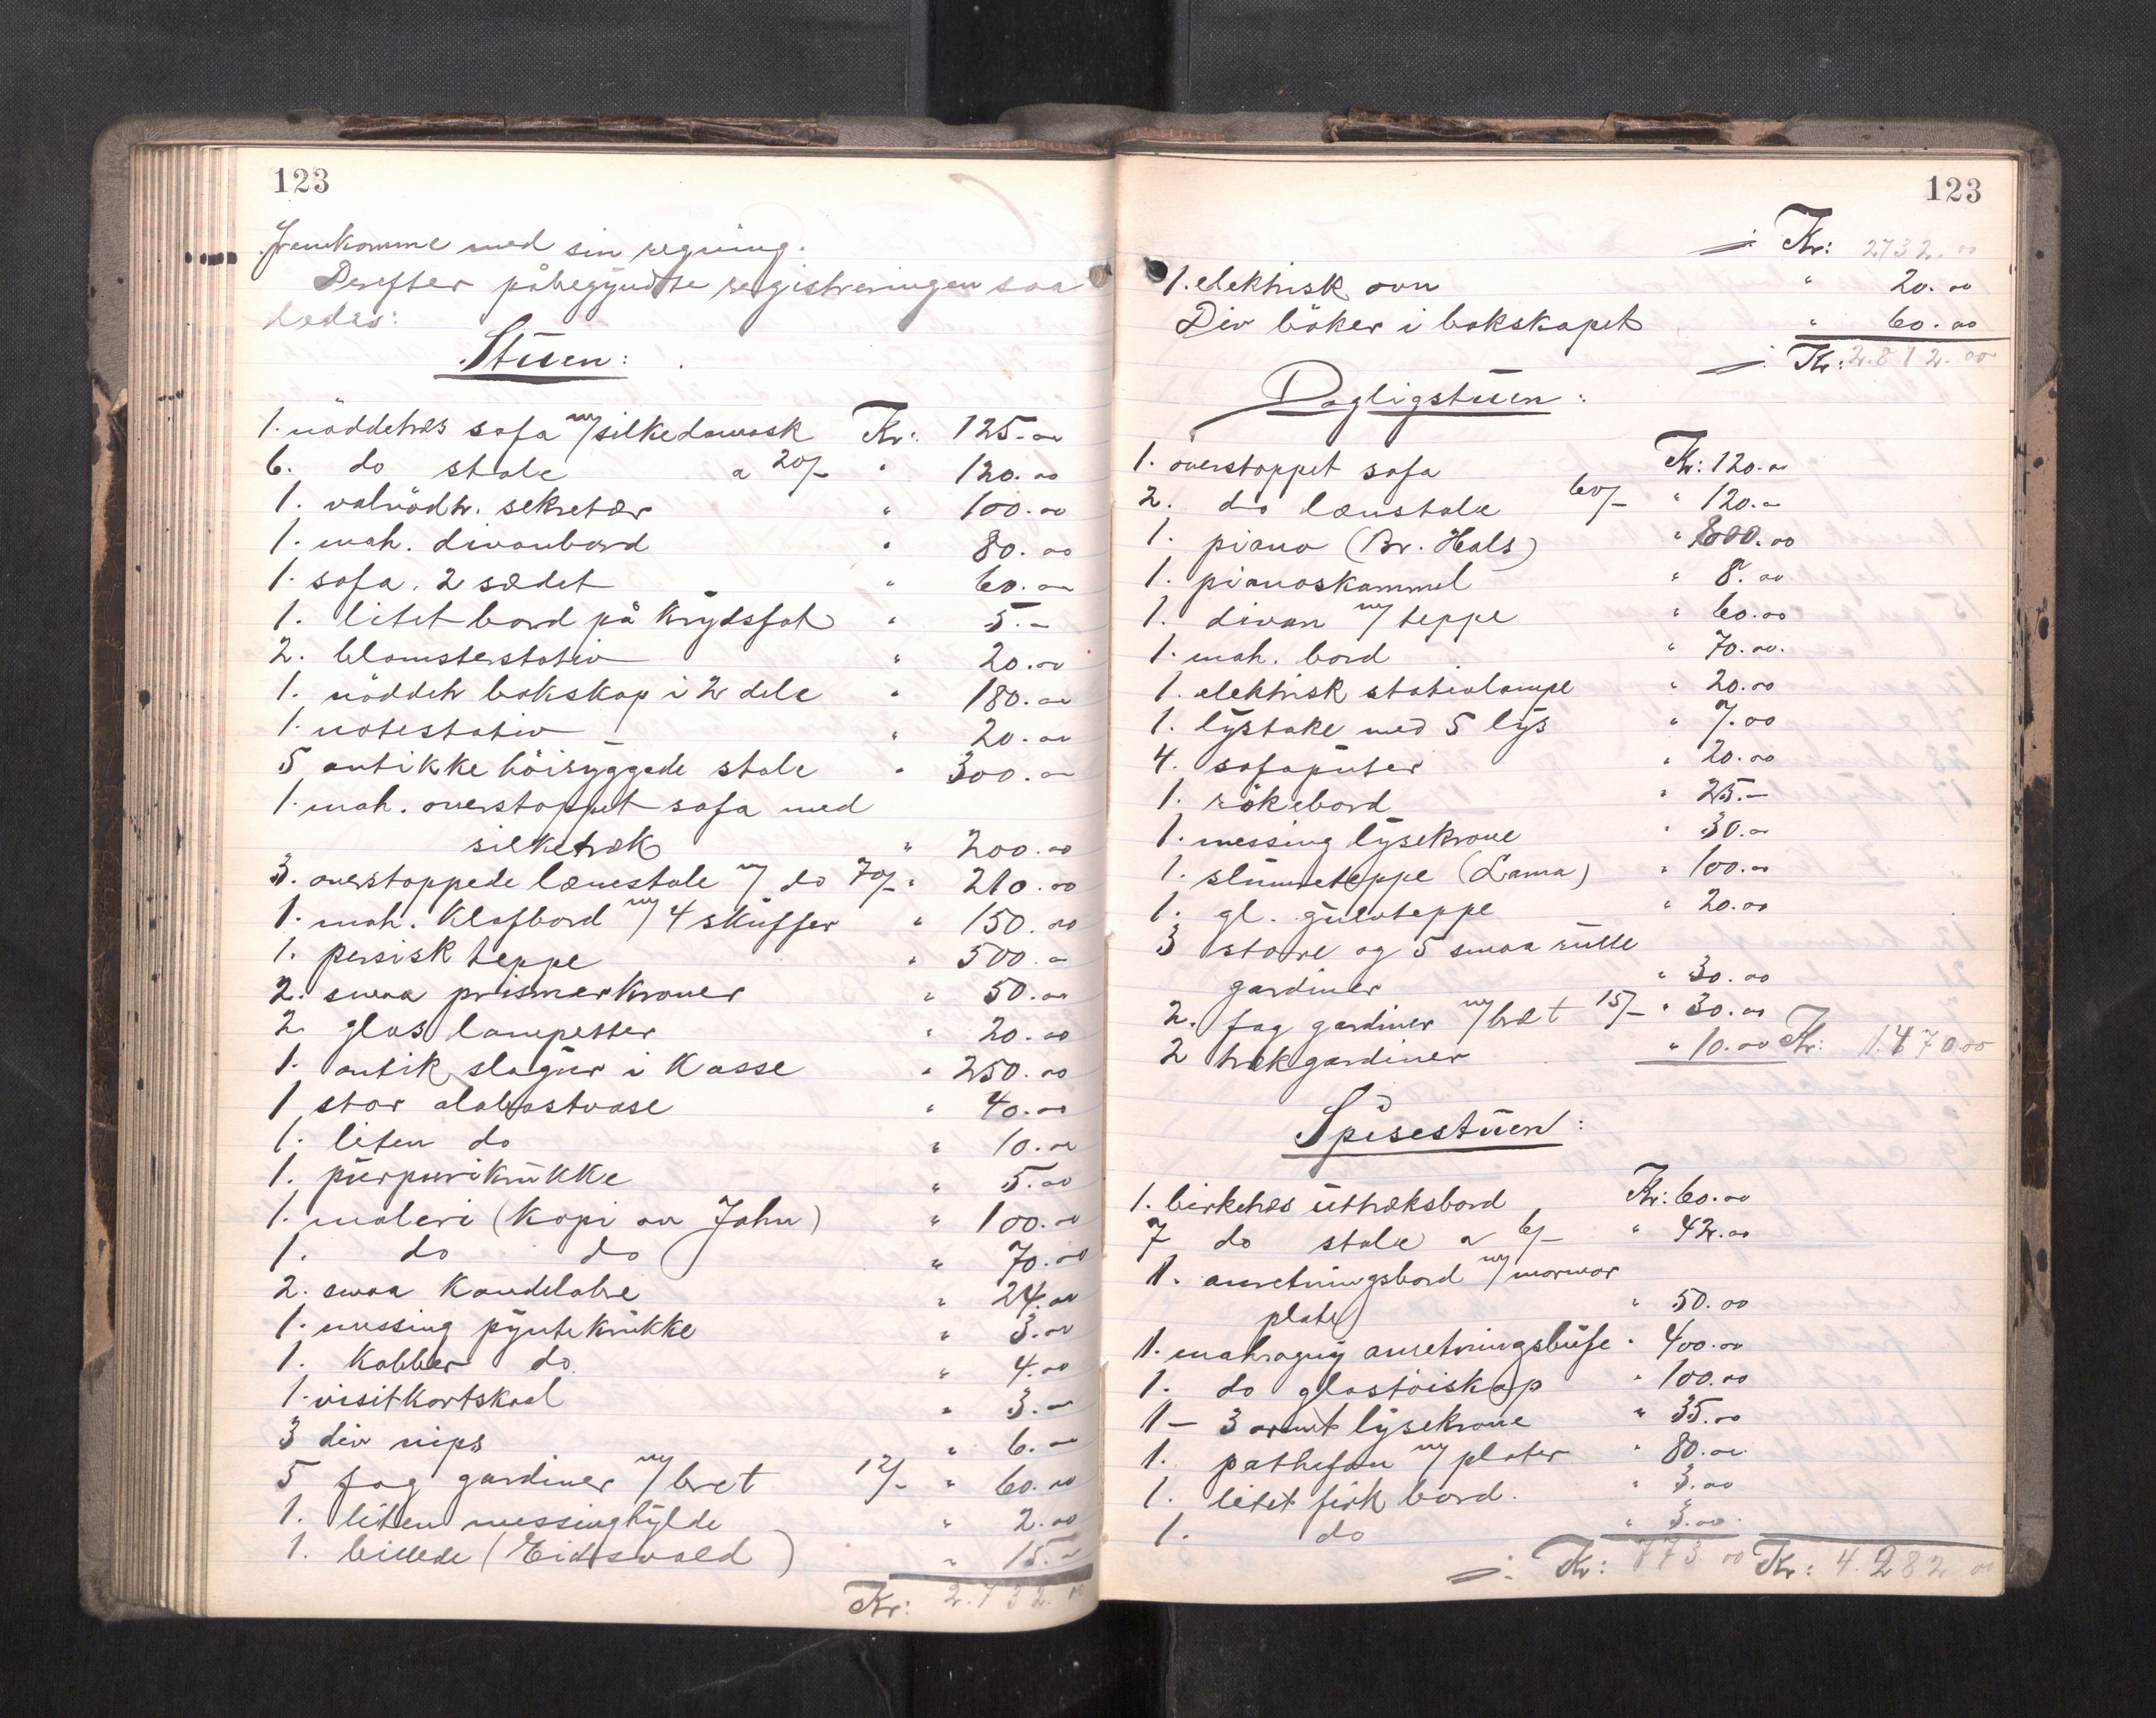 123
fremkomme med sin regning.
Derefter påbegyndte registreringen saa
ledes:
Stuen:
1. nöddetræs sofa m/silkedamask Kr: 125.00
6. do stole a 20/- " 120.00
1. valnödtr. sekretær " 100.00
1. mah. divanbord " 80.00
1. sofa. 2 sædet " 60.00
1. litet bord på krydsfot " 5.-
2. blomsterstativ " 20.00
1. nöddetr bokskap i 2 dele " 180.00
1. notestativ " 20.00
5 antikke höiryggede stole " 300.00
1. mah. overstoppet sofa med
silketræk " 200.00
3. overstoppede lænestole m/ do 70/- " 210.00
1. mah. Klafbord m/ 4 skuffer " 150.00
1. persisk teppe " 500.00
2. smaa prismerkroner " 50.00
2. glas lampetter " 20.00
1. antik slagur i Kasse " 250.00
1 stor alabastvase " 40.00
1. liten do " 10.00
1. purpurikrukke " 5.00
1. maleri (Kopi av Jahn) " 100.00
1. do do " 70.00
2. smaa Kandelabre " 24.00
1. messing pyntekrukke " 3.00
1. Kobber do. " 4.00
1. visitkortskaal " 3.00
3 div nips " 6.00
5 fag gardiner m/ bret 12/- " 60.00
1. liten messinghylde " 2.00
1. billede (Eidsvold) " 15.-
Kr: 2.732.00
123
Kr: 2732.00
1. elektrisk ovn " 20.00
Div böker i bokskapet " 60.00
Kr: 2.812.00
Dagligstuen:
1. overstoppet sofa Kr: 120.00
2. do lænstole 60/- " 120.00
1. piano (Br. Hals) " 800.00
1. pianoskammel " 8.00
1. divan m/ teppe " 60.00
1. mah. bord " 70.00
1. elektrisk stativlampe " 20.00
1. lystake med 5 lys " 7.00
4. sofaputer " 20.00
1. rökebord " 25.-
1. messing lysekrone " 30.00
1. slumreteppe (Lama) " 100.00
1. gl. gulvteppe " 20.00
3 store og 5 smaa rulle
gardiner " 30.00
2. fag gardiner m/ bræt 15/- " 30.00
2 trækgardiner " 10.00 Kr: 1.470.00
Spisestuen:
1. birketræs uttræksbord Kr: 60.00
7 do stole a 6/- " 42.00
1. anretningsbord m/ marmor
plate " 50.00
1. mahragny anretningsbufe " 400.00
1. do glastöiskap " 100.00
1 - 3 armt lysekrone " 35.00
1. pathefon m/ plater " 80.00
1. litet firk bord. " 3.00
1. do " 3.00
Kr: 773.00 Kr: 4.282.00